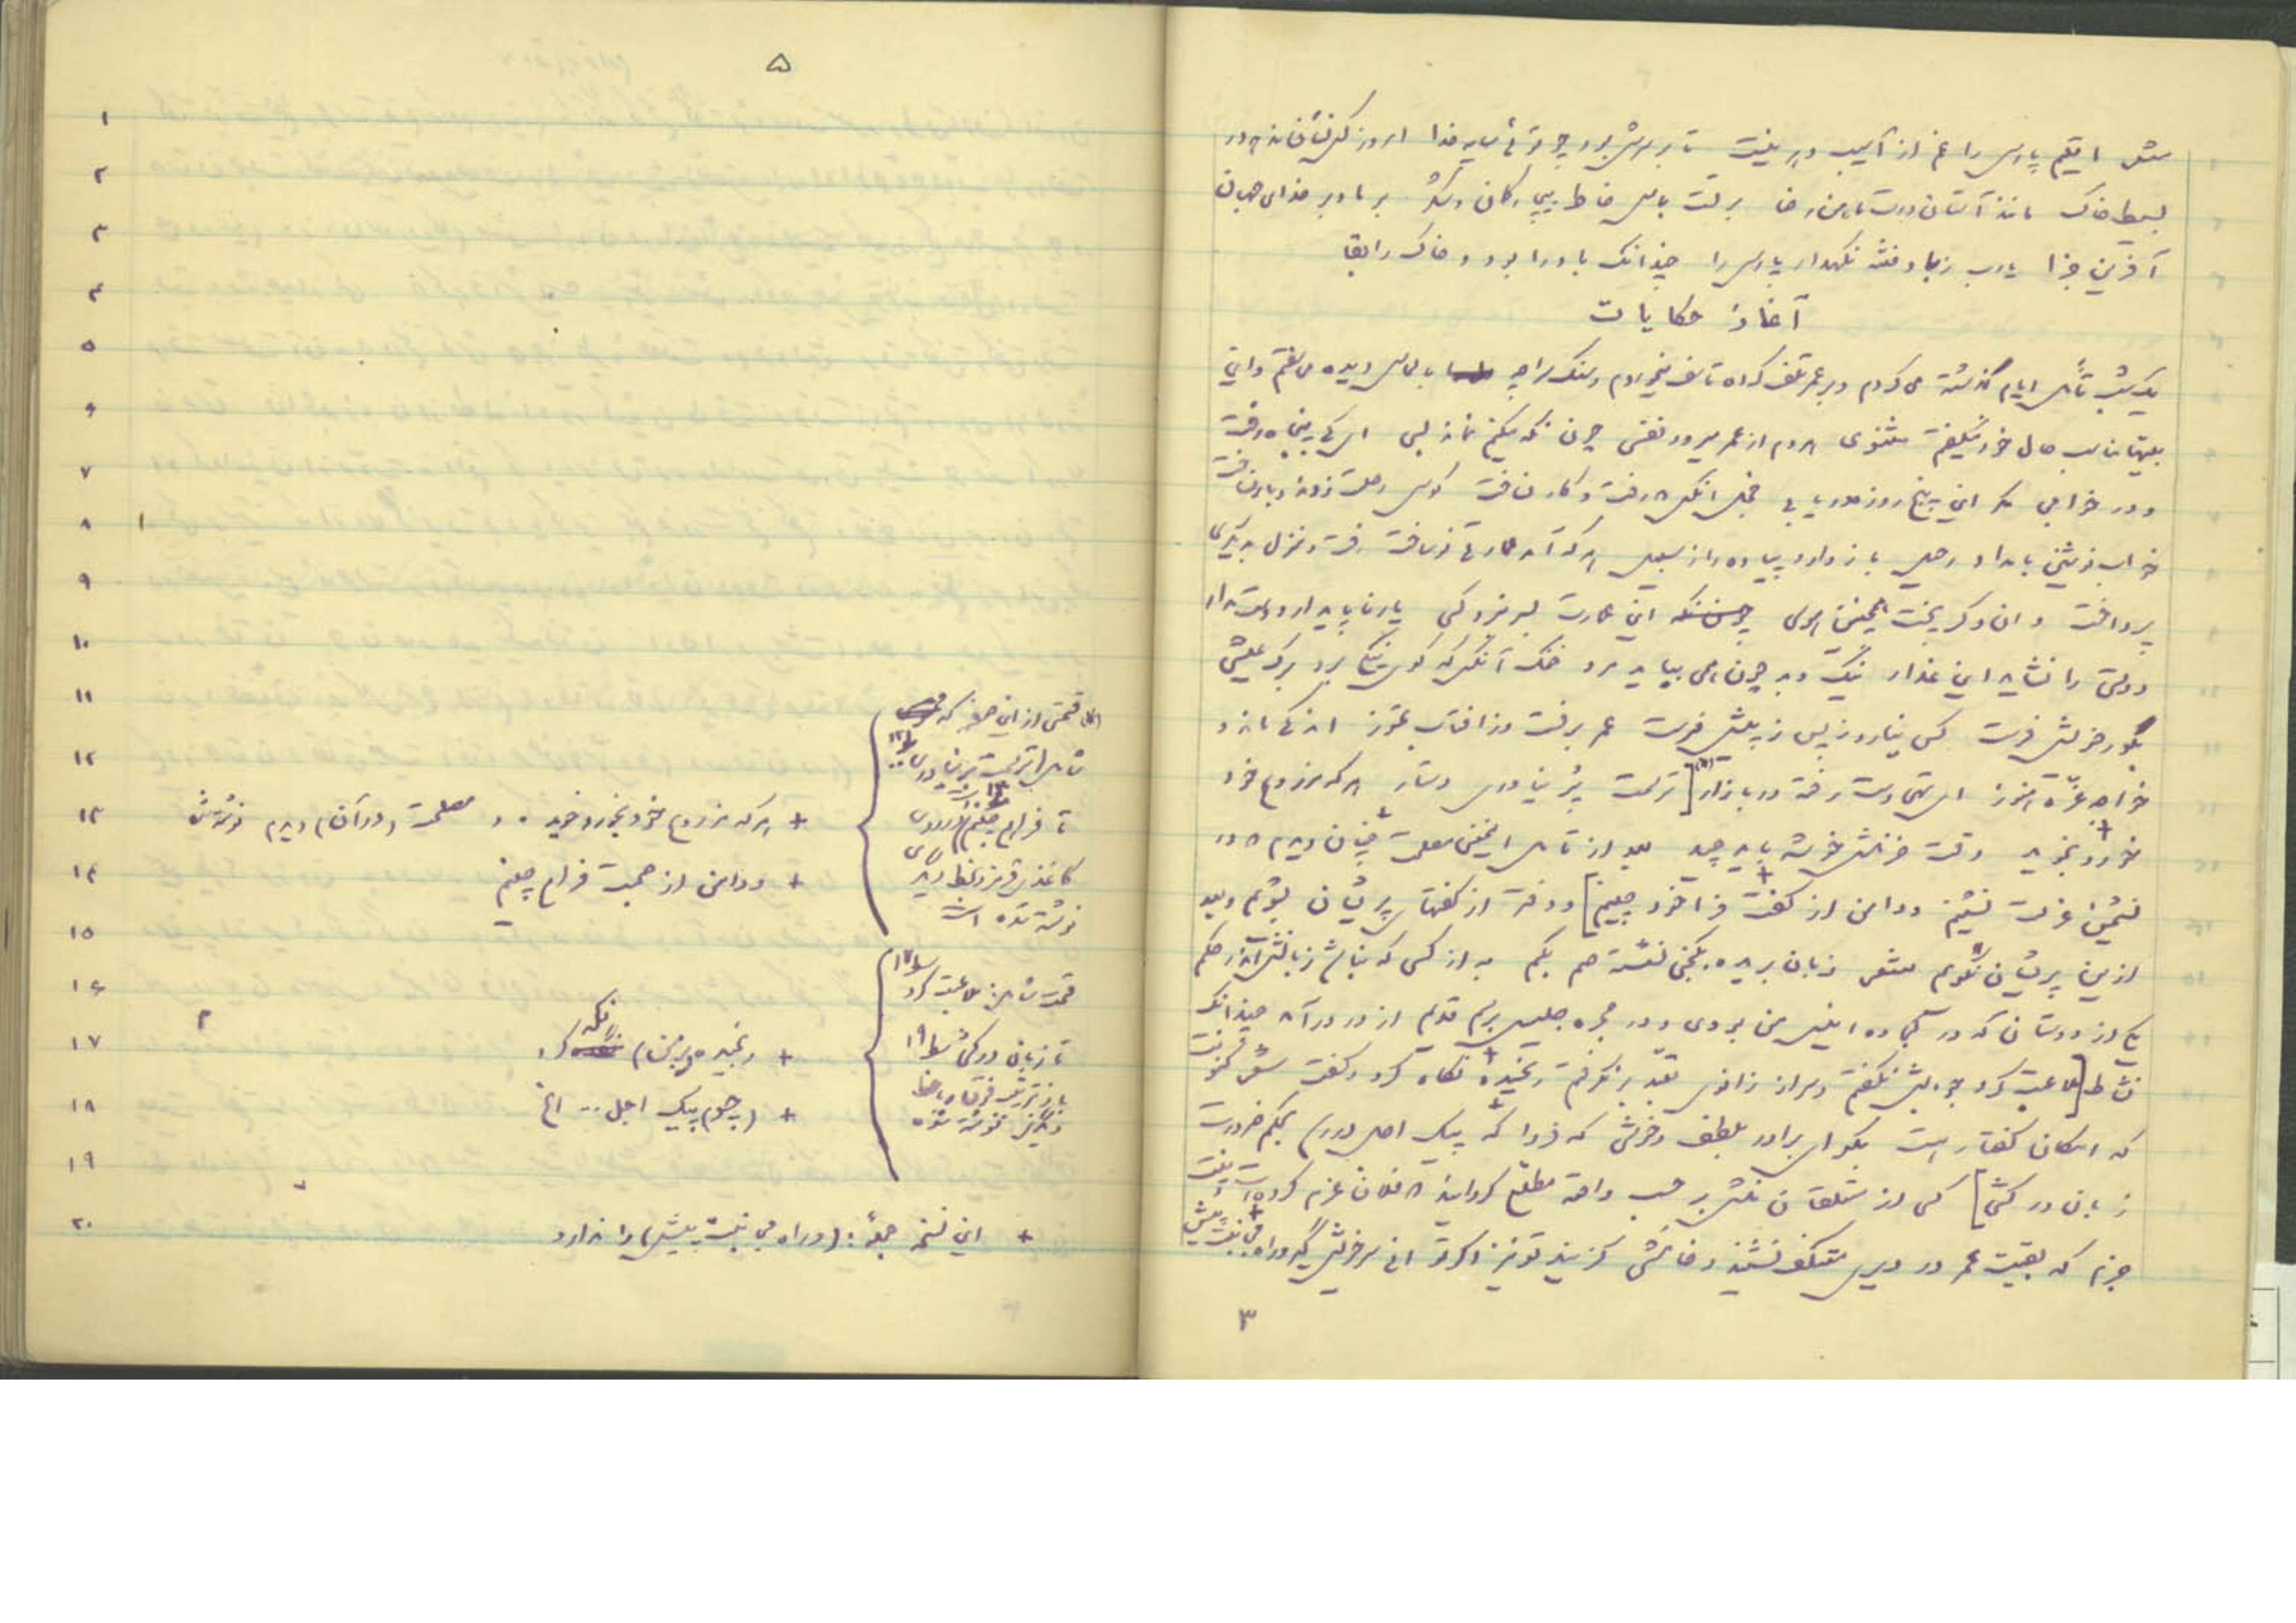 شعر اقلیم پارس را غم از آسیب دهر نیست تا بر سرش بود چو توئی سایه خدا امروز کس نشان ندهد در
بسیط خاک مانند آستان درت مامن رضا بر تست پاس خاطر بیچارگان و شکر بر ما و بر خدای جهان
آفرین جزا یارب ز باد فتنه نگهدار پارس را چندانک باد را بود و خاک را بقا
آغاز حکایات
یک شب تأمل ایام گذشته می کردم و بر عمر تلف کرده تاسف میخوردم و سنگ سراچه بالماس دیده می سفتم و این
بیتها مناسب حال خود میگفتم مثنوی هر دم از عمر میرود نفسی چون نگه میکنم نماند بسی ای که پنجاه رفت
و در خوابی مگر این پنج روزه دریابی خجل آنکس که رفت و کار نساخت کوس رحلت زدند و بار نساخت
خواب نوشین بامداد رحیل باز دارد پیاده را ز سبیل هر که آمد عمارتی نو ساخت رفت و منزل بدیگری
پرداخت و ان دگر پخت همچنین هوسی این عمارت بسر نبرد کسی یار ناپایدار دوست مدار
دوستی را نشاید این غدار نیک و بد چون همی بباید مرد خنک آنکس که گوی نیکی برد برگ عیشی
بگور خویش فرست کس نیارد ز پس ز پیش فرست عمر برفست و ز افتاب تموز اندکی ماند و
خواجه غرّه هنوز ای تهی دست رفته در بازار [(۱) ترسمت پُر نیاوری دستار هر که مزروع خود
خورد بخوید وقت خرمنش خوشه باید چید بعد از تامل اینمعنی مصلحت چنان دیدم که در
نشیمن عزلت نشینم و دامن از صحبت فراخود چینم] و دفتر از گفتهای پریشان بشویم و بعد
ازین پریشان نگویم شعر زبان بریده بکنجی نشسته صم بکم به از کسی که نباشد زبانش اندر حکم
یکی از دوستان که در کجاوه انیس من بودی و در حجره جلیس برسم قدیم از در درآمد چندانک
نشاط [ملاعبت کرد جوابش نگفتم و سر از زانوی تعبّد بر نگرفتم رنجیده نگاه کرد و گفت شعر کنونت
که امکان گفتار هست بگو ای برادر بلطف و خوشی که فردا که پیک اجل در رسد بحکم ضرورت
زبان در کشی] کسی از متعلقان منش بر حسب واقعه مطلّع گردانید که فلان عزم کرده است و نیت
جزم که بقیت عمر در دیری معتکف نشیند و خاموشی گزیند تو نیز اگر توانی سر خویش گیر و راه مجانبت پیش
۳
۵
۱
۲
۳
۴
۵
۶
۷
۸
۹
۱۰
۱۱
۱۲
۱۳
۱۴
۱۵
۱۶
۱۷
۱۸
۱۹
۲۰
(۱) قسمتی از این صفحه که
شامل (ترسمت پر نیاوری س۱۲
تا فراهم چینم س۱۴
کاغذش قرمز و بخط دیگری
نوشته شده است
+ هر که مزروع خود بخورد خوید .. و مصلحت (در آن) دیدم نوشته شده
+ و دامن از صحبت فراهم چینم
قسمت شامل: ملاعبت کرد س۱۷
تا زبان در کشی س۱۹
+ رنجیده (بمن) نگه کرد
+ (چو) پیک اجل .. الخ
+ این نسخه جملهٔ: (و راه مجانبت پیش) را ندارد